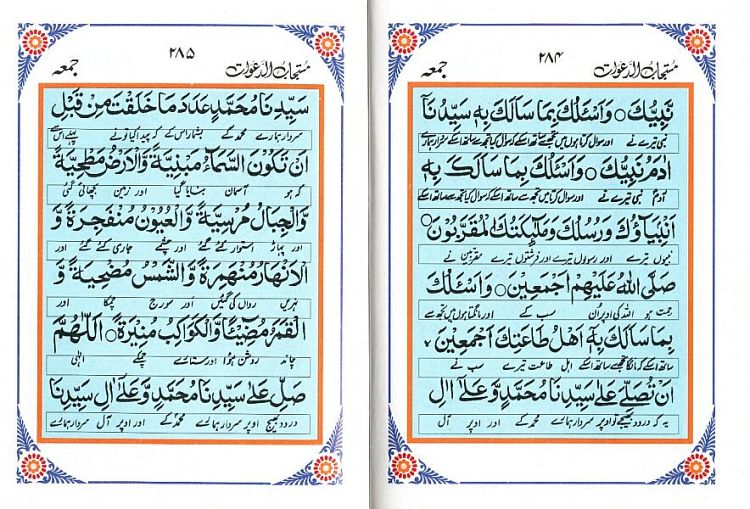 مستجاب الدعوات ۲۸۴ جمعہ
نَّبِيُّكَ○ وَاَسْئَلُكَ بِمَا سَاَلَكَ بِهٖ سَيِّدُنَآ
نبی تیرے نے اور سوال کرتا ہوں میں تجھ سے ساتھ اسکے کہ سوال کیا تجھ سے ساتھ اسکے سردار ہمارے
اٰدَمُ نَبِيُّكَ○ وَاَسْئَلُكَ بِمَا سَاَلَكَ بِهٖ
آدمؑ نبی تیرے نے اور سوال کرتا ہوں میں تجھ سے ساتھ اسکے کہ سوال کیا تجھ سے ساتھ اسکے
اَنْبِيَآؤُكَ وَرُسُلُكَ وَمَلٰٓئِكَتُكَ الْمُقَرَّبُوْنَ○
نبیوں تیرے اور رسولوں تیرے اور فرشتوں تیرے مقربین نے
صَلَّى اللهُ عَلَيْهِمْ اَجْمَعِيْنَ○ وَاَسْئَلُكَ
رحمت ہو اللہ کی اوپر اُن سب کے اور مانگتا ہوں میں تجھ سے
بِمَا سَاَلَكَ بِهٖٓ اَهْلُ طَاعَتِكَ اَجْمَعِيْنَ
ساتھ اسکے کہ مانگا تجھ سے ساتھ اسکے اہل طاعت تیرے سب نے
اَنْ تُصَلِّىَ عَلٰى سَيِّدِنَا مُحَمَّدٍ وَّعَلٰٓى اٰلِ
یہ کہ درود بھیجے تو اوپر سردار ہمارے محمدؐ کے اور اوپر آل
مستجاب الدعوات ۲۸۵ جمعہ
سَيِّدِنَا مُحَمَّدٍ عَدَدَ مَا خَلَقْتَ مِنْ قَبْلِ
سردار ہمارے محمدؐ کے بشمار اس کے کہ پیدا کیا تو نے پہلے اس سے
اَنْ تَكُوْنَ السَّمَآءُ مَبْنِيَّةً وَّالْاَرْضُ مَطْحِيَّةً
کہ ہو آسمان بنایا گیا اور زمین بچھائی گئی
وَّالْجِبَالُ مُرْسِيَةً وَّالْعُيُوْنُ مُنْفَجِرَةً وَّ
اور پہاڑ استوار کئے گئے اور چشمے جاری کئے گئے اور
الْاَنْهَارُ مُنْهَمِرَةً وَّالشَّمْسُ مُضْحِيَةً وَّ
نہریں رواں کی گئیں اور سورج چمکا اور
الْقَمَرُ مُضِيْٓئًا وَّالْكَوَاكِبُ مُنِيْرَةً○ اَللّٰهُمَّ
چاند روشن ہوا اور ستارے چمکے الٰہی
صَلِّ عَلٰى سَيِّدِنَا مُحَمَّدٍ وَّعَلٰٓى اٰلِ سَيِّدِنَا
درود بھیج اوپر سردار ہمارے محمدؐ کے اور اوپر آل سردار ہمارے